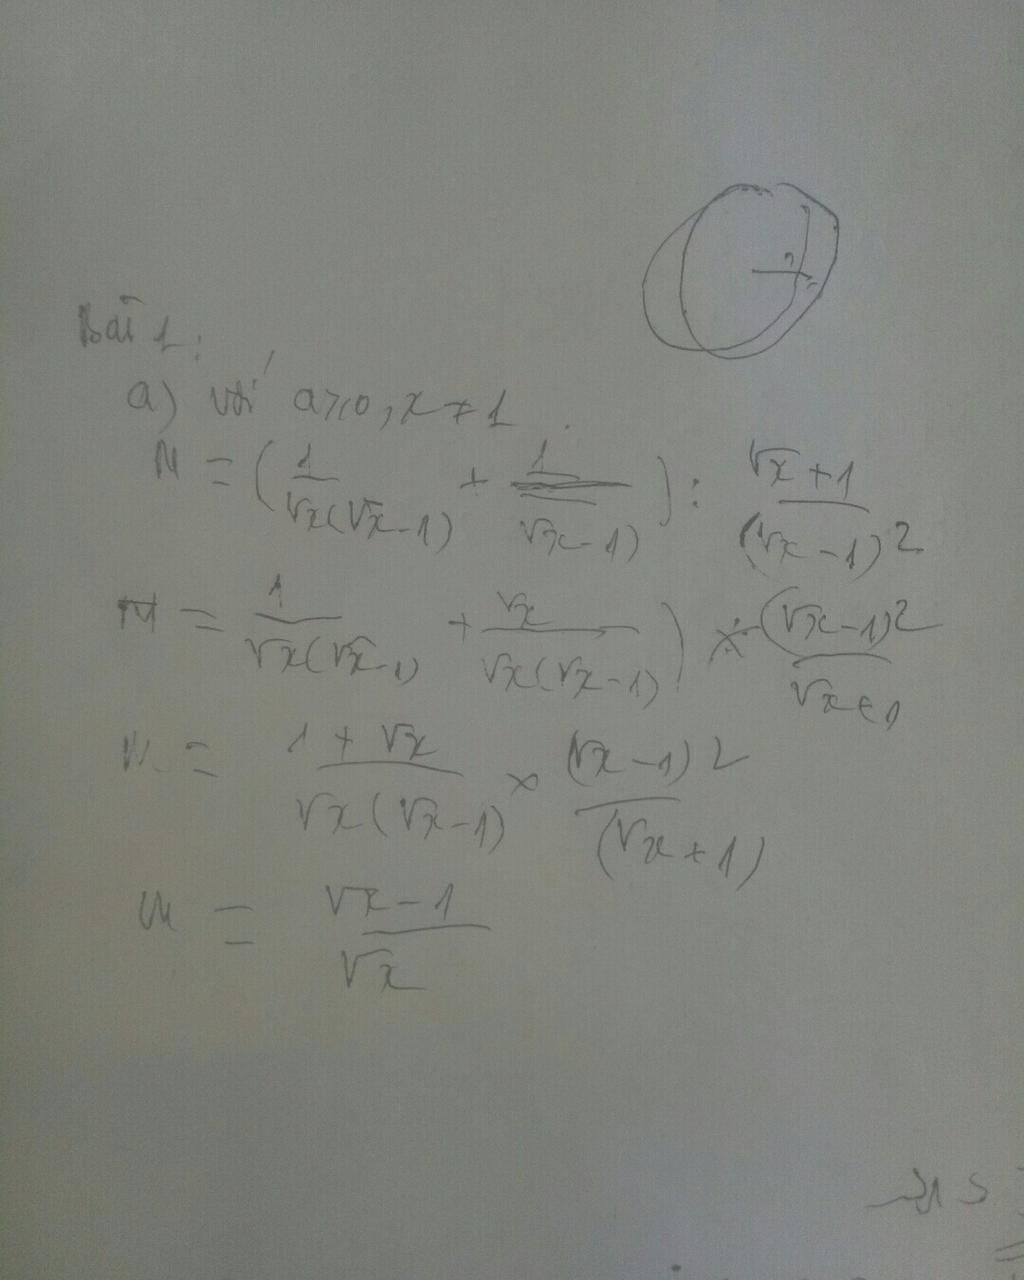 Bài 1:
a) với a>0, x ≠ 1.
M = (1/(√x(√x-1)) + 1/(√x-1)) : (√x+1)/(√x-1)²
M = 1/(√x(√x-1)) + √x/(√x(√x-1))) × (√x-1)²/(√x+1)
M = (1+√x)/(√x(√x-1)) × (√x-1)²/(√x+1)
M = (√x-1)/√x